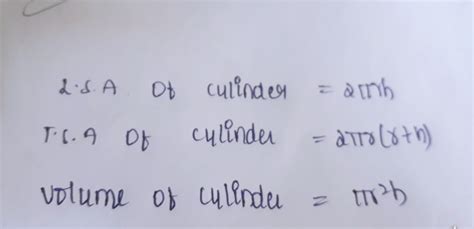 L.S.A Of cylinder = 2πrh
T.S.A Of cylinder = 2πr(r+h)
Volume of cylinder = πr²h